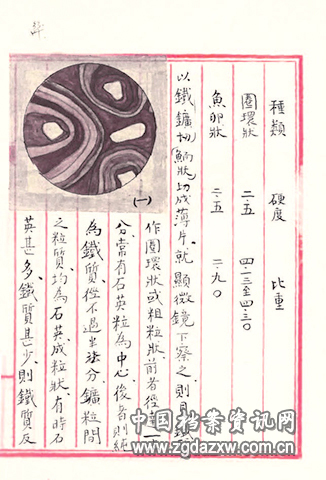 種類 硬度 比重
圈環狀 二·五 至四·三〇
魚卵狀 二·五 二·九〇
以鐵鑛(鮞狀)切成薄片、就顯微鏡下察之、則見
作圈環狀或粗粒狀前者徑達一
分、常有石英粒為中心、後者則純
為鐵質、徑不過半法分、鑛粒間
之粒質、均為石英、成粒狀有時石
英甚多、鐵質甚少、則鐵質反
(一)
中国档案资讯网
www.zgdazxw.com.cn